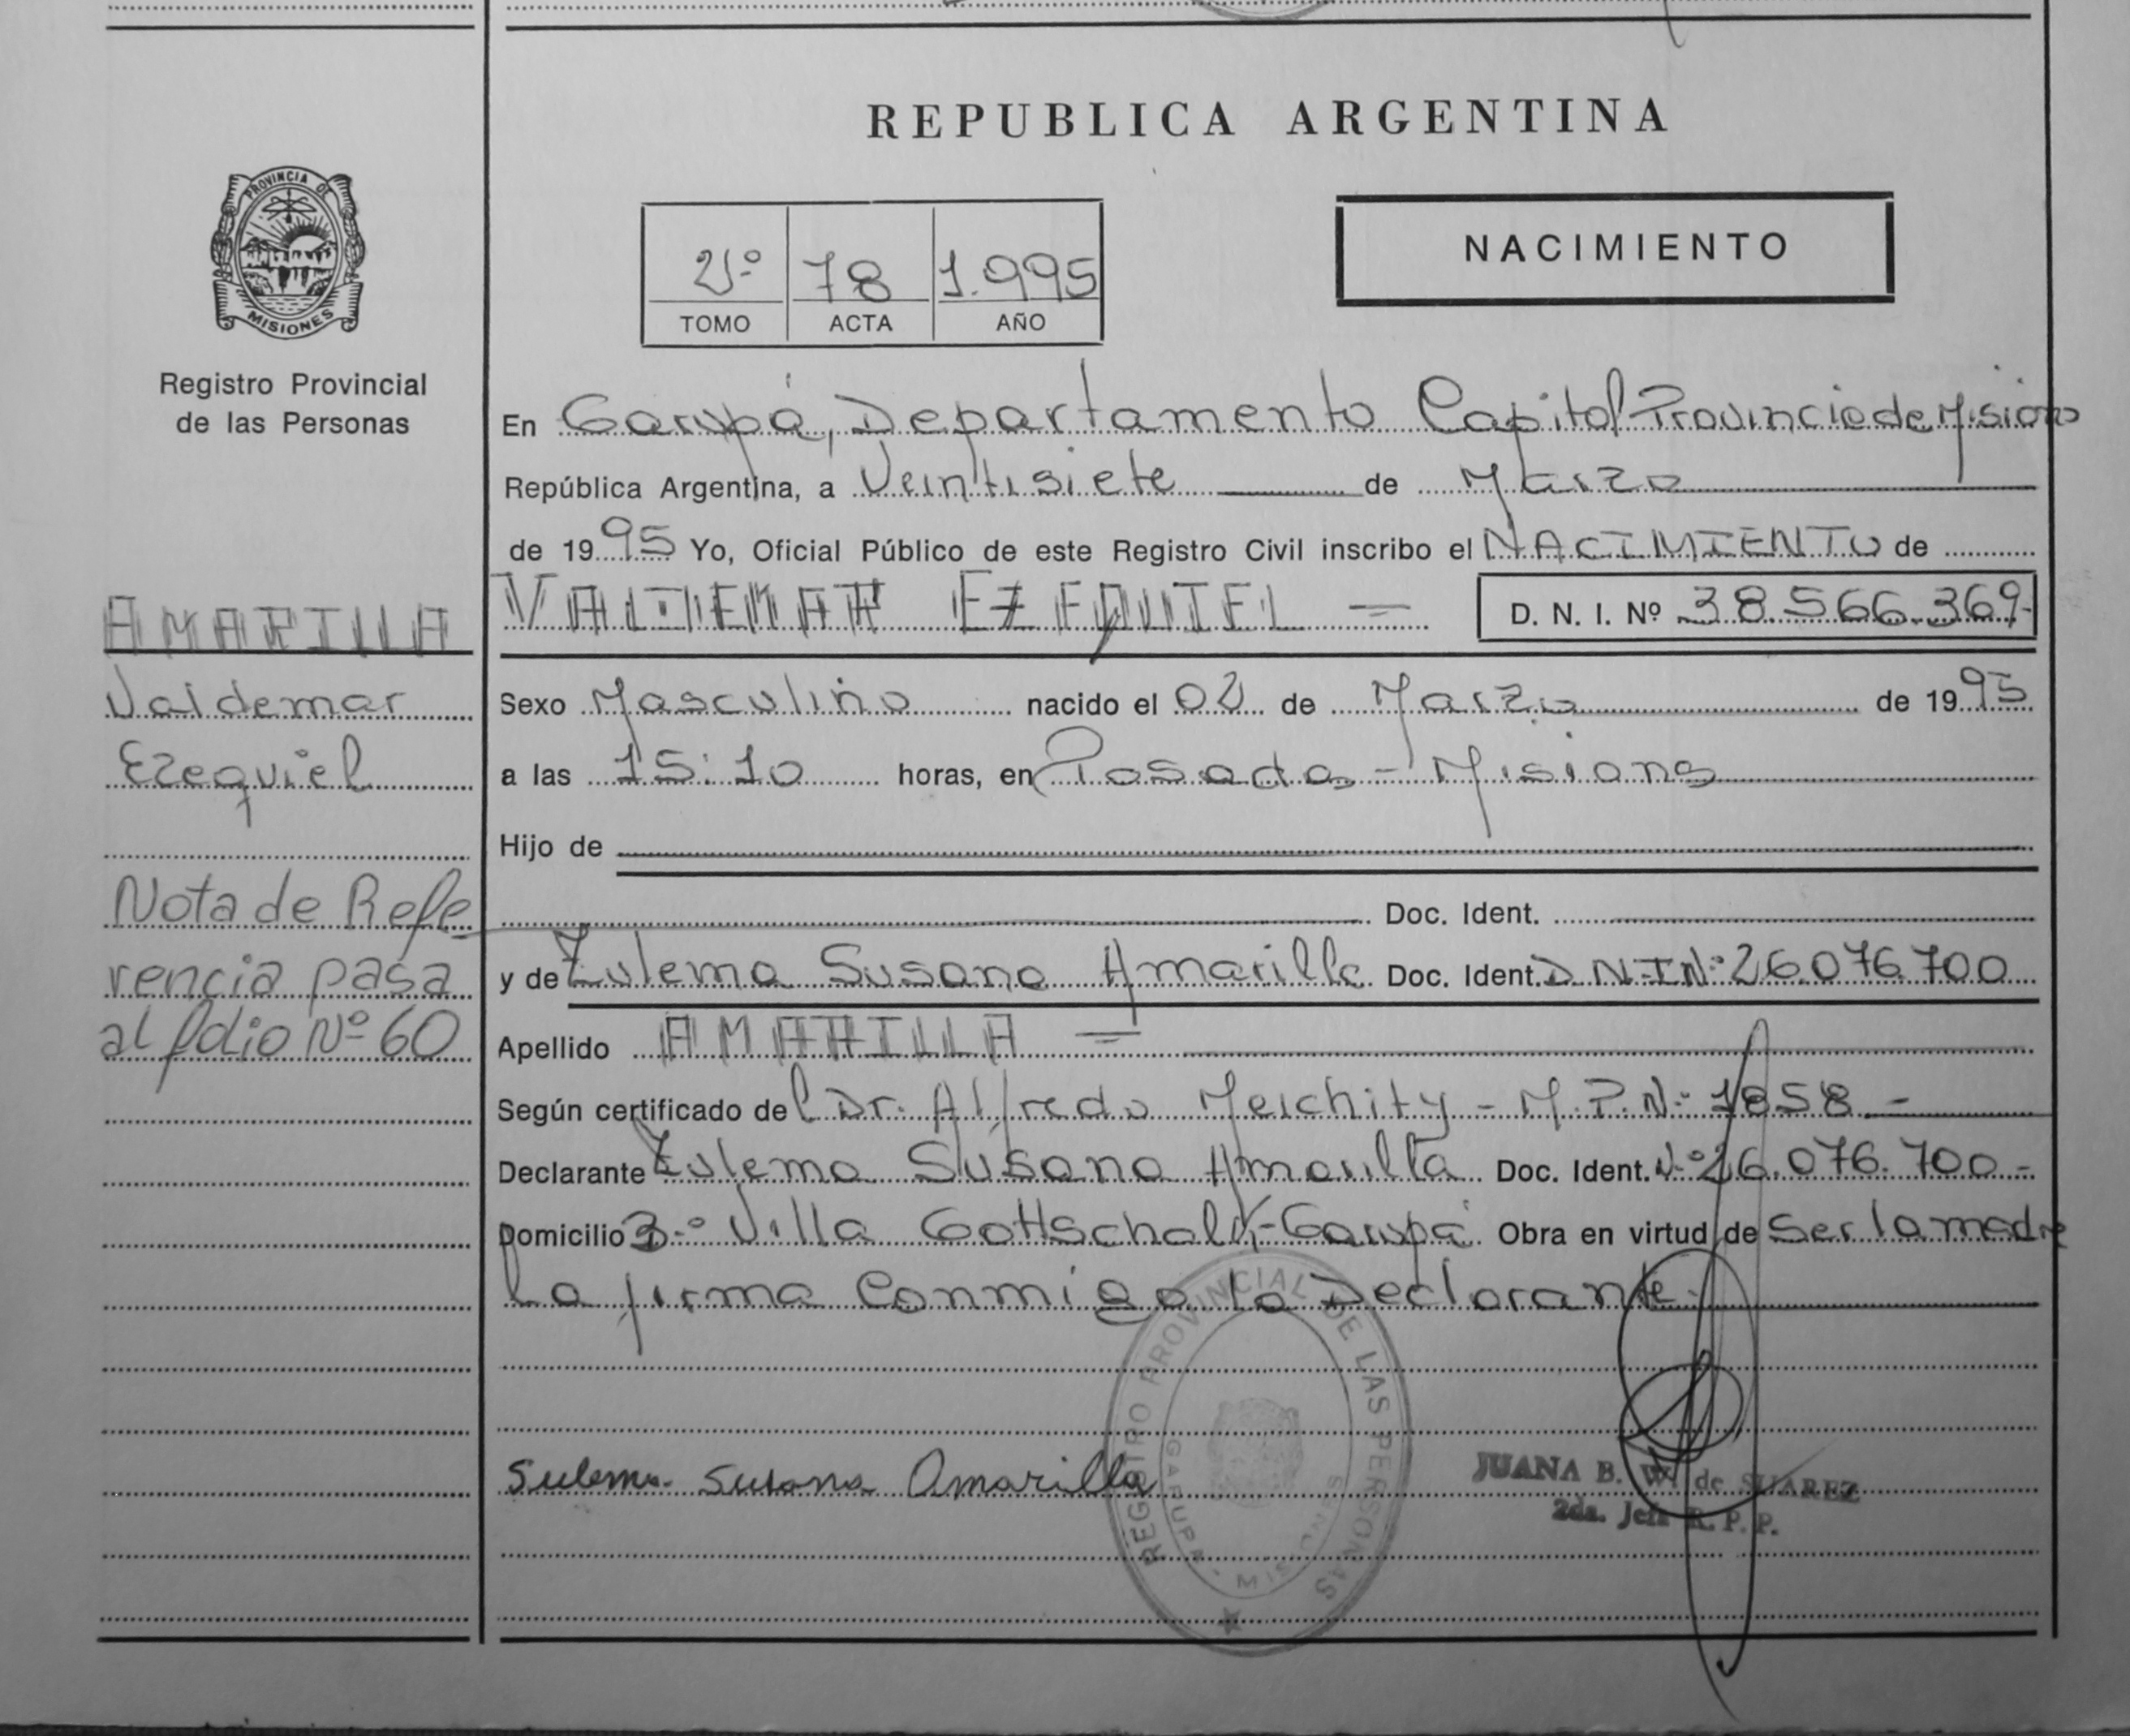 REPUBLICA ARGENTINA
PROVINCIA DE
MISIONES
Registro Provincial
de las Personas
2º 78 1.995
TOMO ACTA AÑO
NACIMIENTO
En Garupá, Departamento Capital Provincia de Misions
República Argentina, a Veintisiete de Marzo
de 1995 Yo, Oficial Público de este Registro Civil inscribo el NACIMIENTO de
VALDEMAR EZEQUIEL = D. N. I. Nº 38.566.369-
AMARILLA
Valdemar
Ezequiel
Sexo Masculino nacido el 02 de Marzo de 1995
a las 15:10 horas, en Posadas - Misions
Hijo de
Doc. Ident.
Nota de Refe
rencia pasa
al folio Nº 60
y de Zulema Susana Amarilla Doc. Ident. D.N.I Nº 26.076.700
Apellido AMARILLA =
Según certificado del Dr. Alfredo - M.P.Nº 1858 -
Declarante Zulema Susana Amarilla Doc. Ident. Nº 26.076.700-
Domicilio 3º Villa Gottschalk - Garupá Obra en virtud de Ser la madre
La firma Conmigo la Declarante.
Sulema Susana Amarilla
REGISTRO PROVINCIAL DE LAS PERSONAS
GARUPA - MISIONES
JUANA B. W. de SUAREZ
2da. Jefa R. P. P.